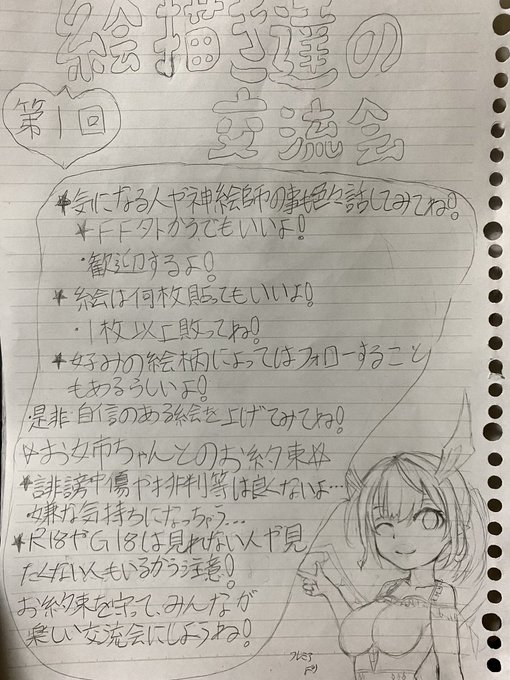 絵描き達の
交流会
第1回
★気になる人や神絵師の事も色々話してみてね!
★FF外からでもいいよ!
・歓迎するよ!
★絵は何枚貼ってもいいよ!
・1枚以上貼ってね!
★好みの絵柄によってはフォローすること
もあるらしいよ!
是非自信のある絵を上げてみてね!
☆お姉ちゃんとのお約束☆
★誹謗中傷や批判等は良くないよ…
嫌な気持ちになっちゃう…
★R18やG18は見れない人や見
たくない人もいるから注意!
お約束を守って、みんなが
楽しい交流会にしようね!